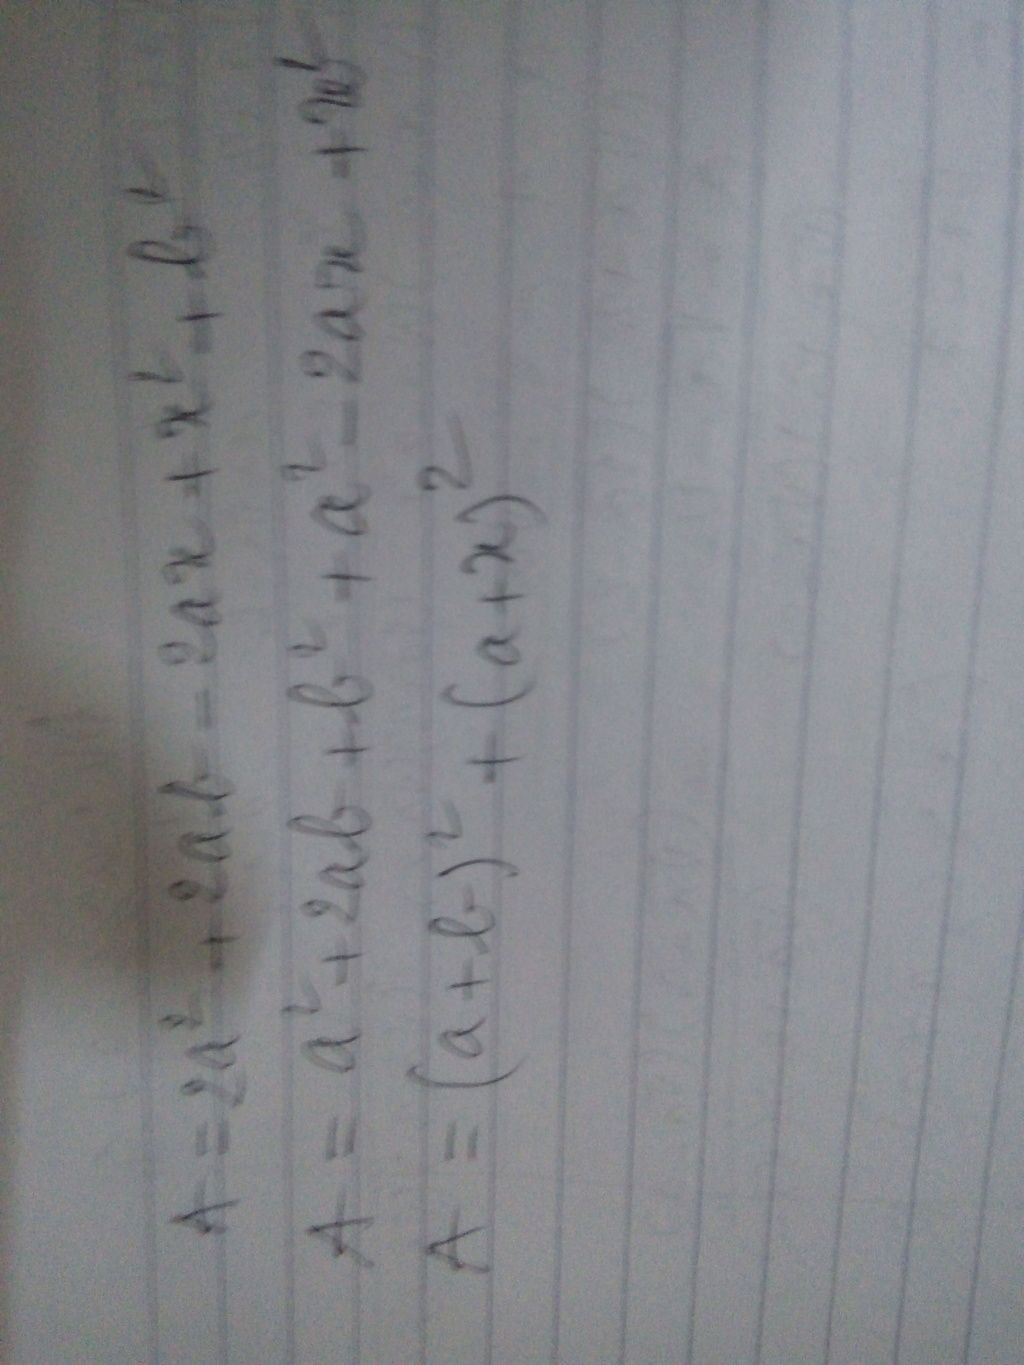 A = 2a² + 2ab - 2ax + x² + b²
A = a² + 2ab + b² + a² - 2ax + x²
A = (a+b)² + (a+x)²